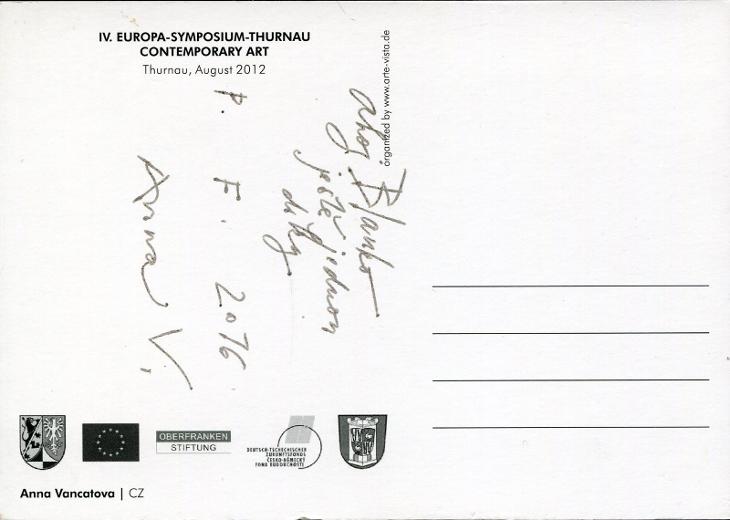 IV. EUROPA-SYMPOSIUM-THURNAU
CONTEMPORARY ART
Thurnau, August 2012
organized by www.arte-vista.de
ahoj Blanko
ještě jednou
díky
P. F. 2016
Anna V.
OBERFRANKEN
STIFTUNG
DEUTSCH-TSCHECHISCHER
ZUKUNFTSFONDS
ČESKO-NĚMECKÝ
FOND BUDOUCNOSTI
Anna Vancatova | CZ